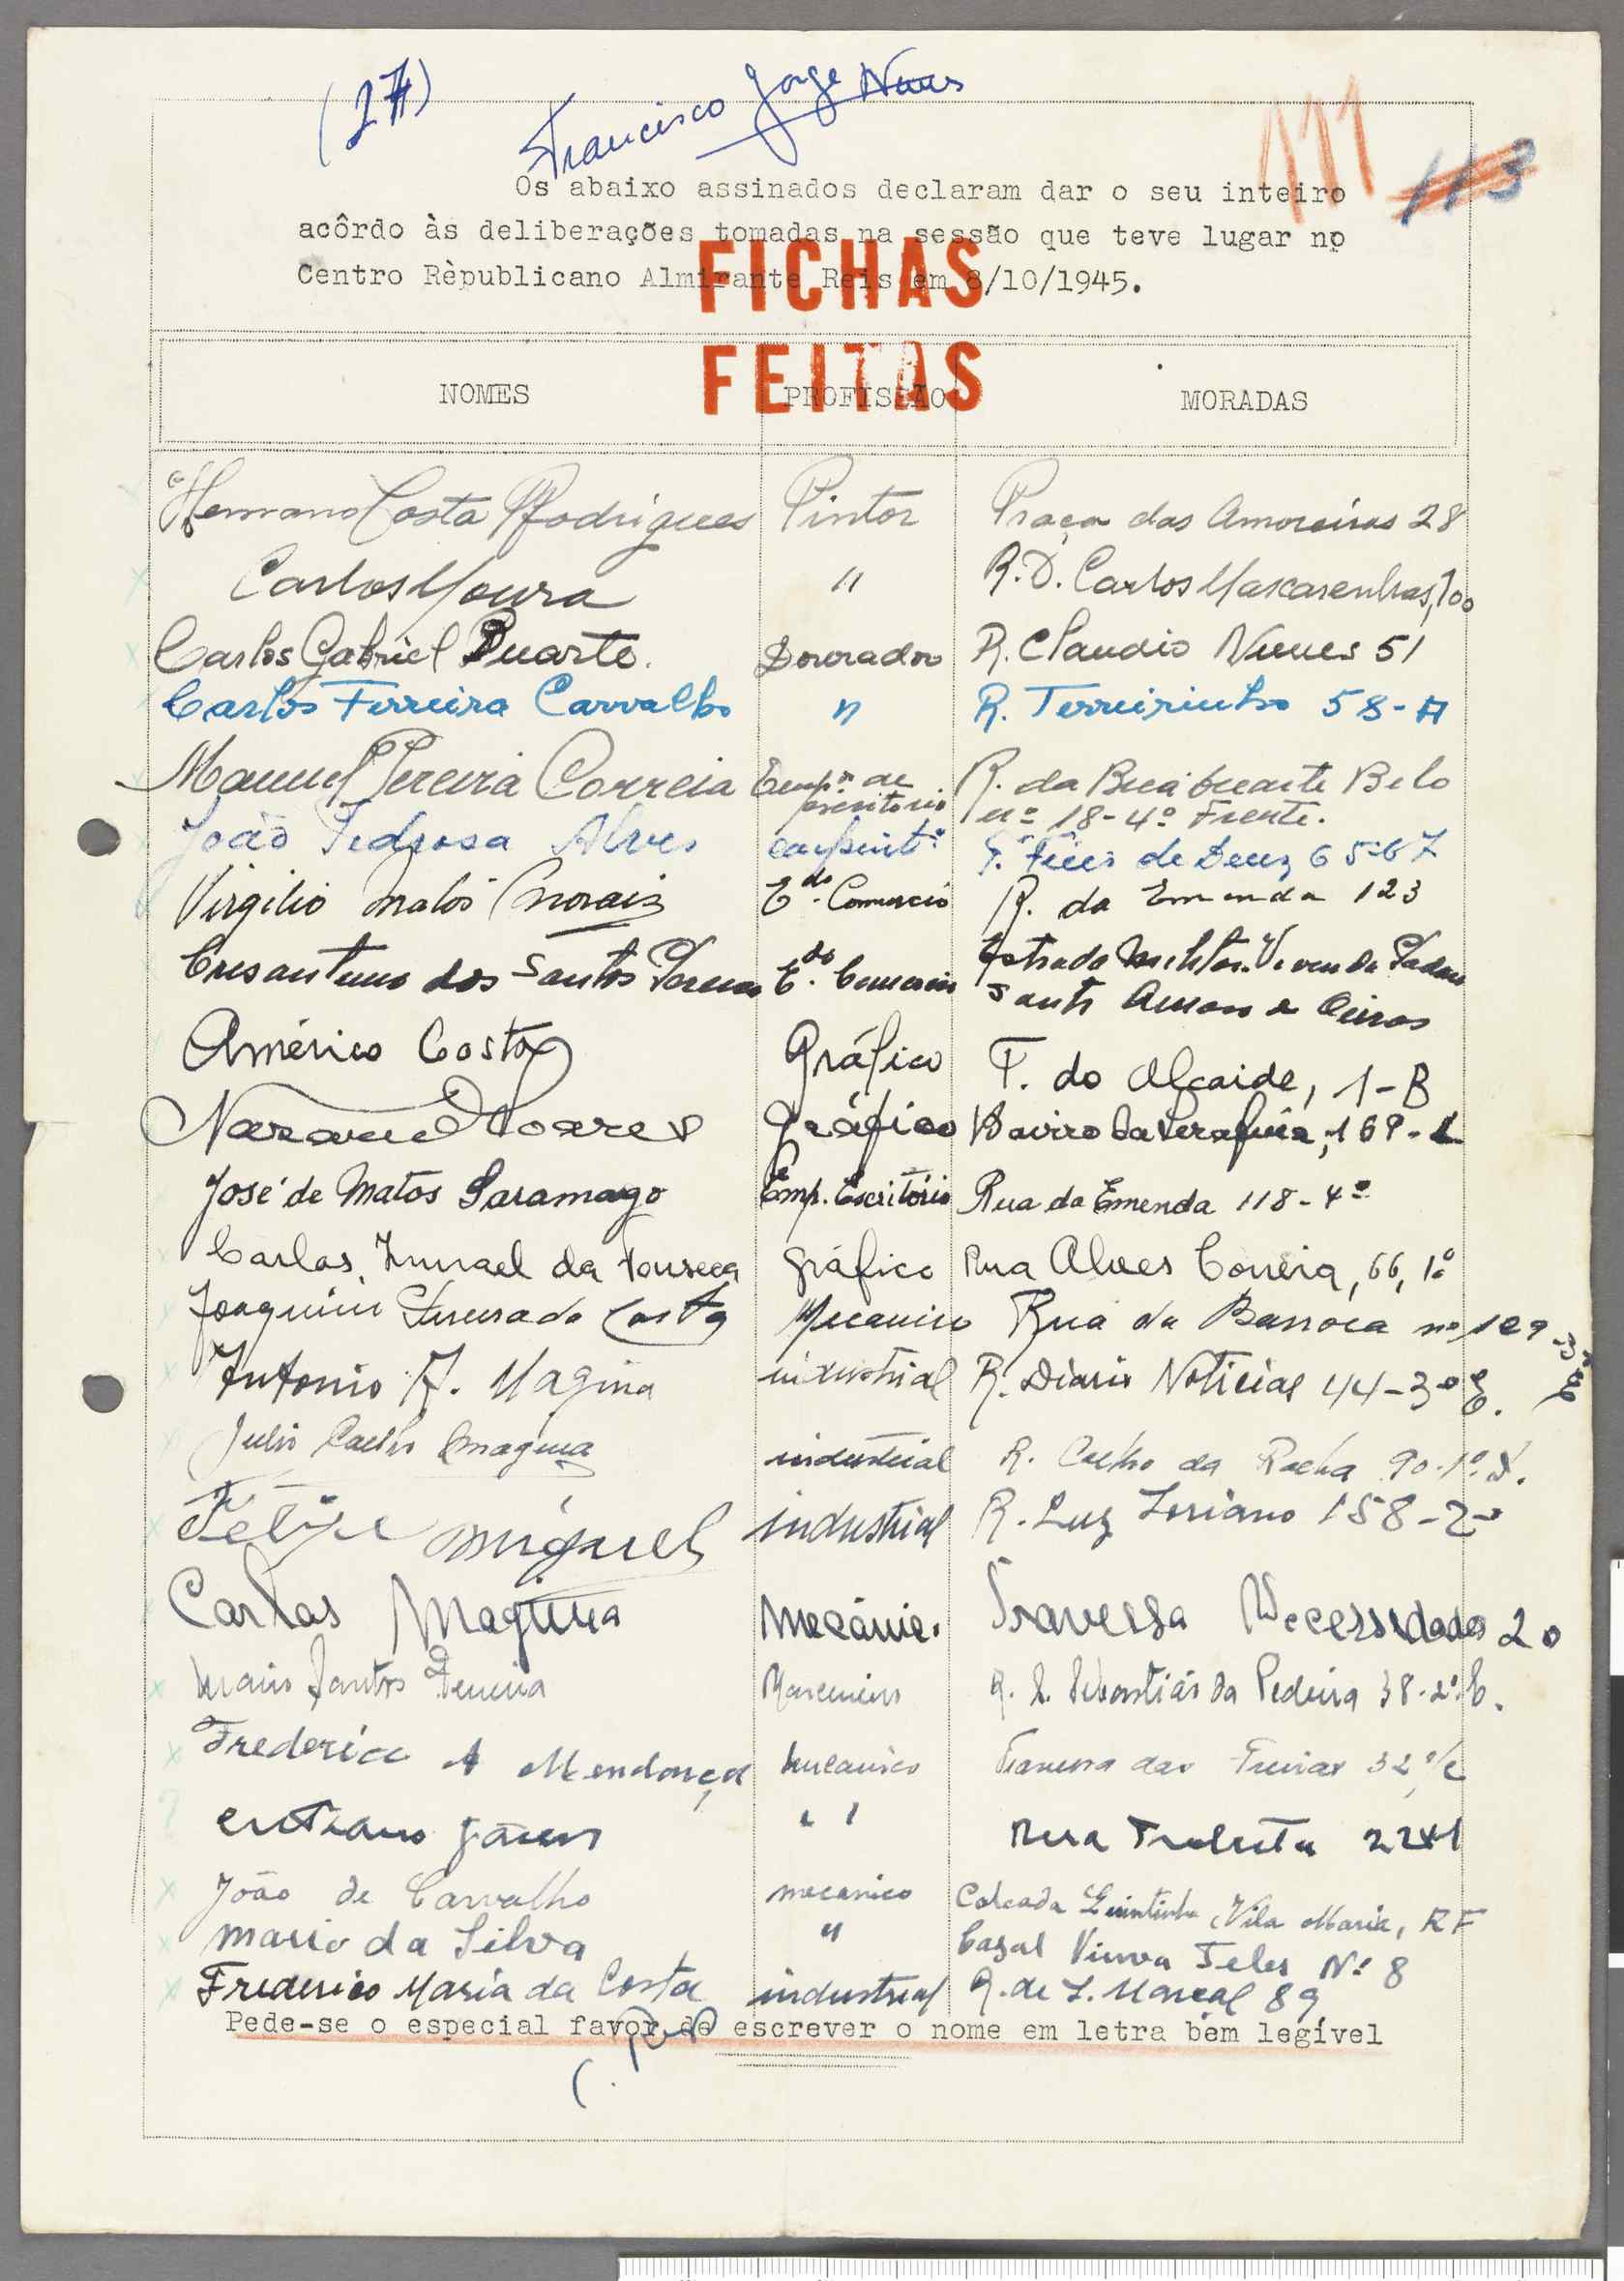 (27)
Francisco Jorge Nunes
111
113
Os abaixo assinados declaram dar o seu inteiro
acôrdo às deliberações tomadas na sessão que teve lugar no
Centro Rèpublicano Almirante Reis em 8/10/1945.
FICHAS
FEITAS
NOMES PROFISSÃO MORADAS
Hermano Costa Rodrigues Pintor Praça das Amoreiras 28
Carlos Moura " R. D. Carlos Mascarenhas, 100
Carlos Gabriel Duarte. Dourador R. Claudio Nunes 51
Carlos Ferreira Carvalho " R. Terreirinho 58-A
Manuel Pereira Correia Emp. de escritorio R. da Boa Belo
nº 18-4º Frente.
João Pedrosa Alves carpintº. de Deus 65-67
Virgilio Matos Morais E.do Comercio R. da Emenda 123
dos Santos E.do Comercio Estrada Militar
Santo Amaro de Oeiras
Américo Costa Gráfico T. do Alcaide, 1-B
Soares gráfico Bairro da Serafina, 169-
José de Matos Saramago Emp. Escritório Rua da Emenda 118-4º
Carlos da Fonseca gráfico Rua Alves Correia, 66, 1º
Joaquim Costa Mecanico Rua da Barroca nº 129-3º E
Antonio A. Magina industrial R. Diario Noticias 44-3º E.
Julio Coelho Magina industrial R. Coelho da Rocha 90-1º D.
Felipe Miguel industrial R. Luz Soriano 158-2º
Carlos Magina Mecânic. Travessa Necessidades 20
Mario Santos Marceneiro R. S. Sebastião da Pedreira 38-2º E.
Frederico A Mendonça Mecanico Travessa das Freiras 32
" Rua
João de Carvalho mecanico Calçada Quintinha, Vila Maria, RF
Mario da Silva " Casal Viuva Teles Nº 8
Frederico Maria da Costa industrial R. de S. Marçal 89
Pede-se o especial favor de escrever o nome em letra bem legível